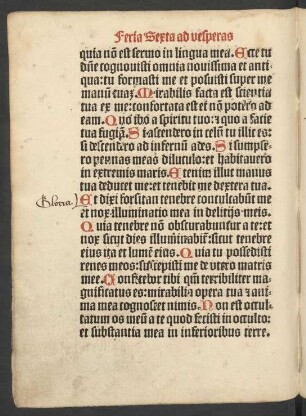 Feria Sexta ad vesperas
quia nō est sermo in lingua mea. Ecce tu
dñe cognouisti omnia nouissima et anti-
qua: tu formasti me et posuisti super me
manū tuaȝ. Mirabilis facta est scientia
tua ex me: confortata est et nō potero ad
eam. Quo ibo a spiritu tuo: et quo a facie
tua fugiā. Si ascendero in celū tu illic es:
si descendero ad infernū ades. Si sumpse-
ro pennas meas diluculo: et habitauero
in extremis maris. Etenim illuc manus
tua deducet me: et tenebit me dextera tua.
Gloria.
Et dixi forsitan tenebre conculcabūt me
et nox illuminatio mea in delitijs meis.
Quia tenebre nō obscurabuntur a te: et
nox sicut dies illuminabit: sicut tenebre
eius ita et lumē eius. Quia tu possedisti
renes meos: suscepisti me de vtero matris
mee. Confitebor tibi qm̄ terribiliter ma-
gnificatus es: mirabilia opera tua et ani-
ma mea cognoscet nimis. Non est occul-
tatum os meū a te quod fecisti in occulto:
et substantia mea in inferioribus terre.